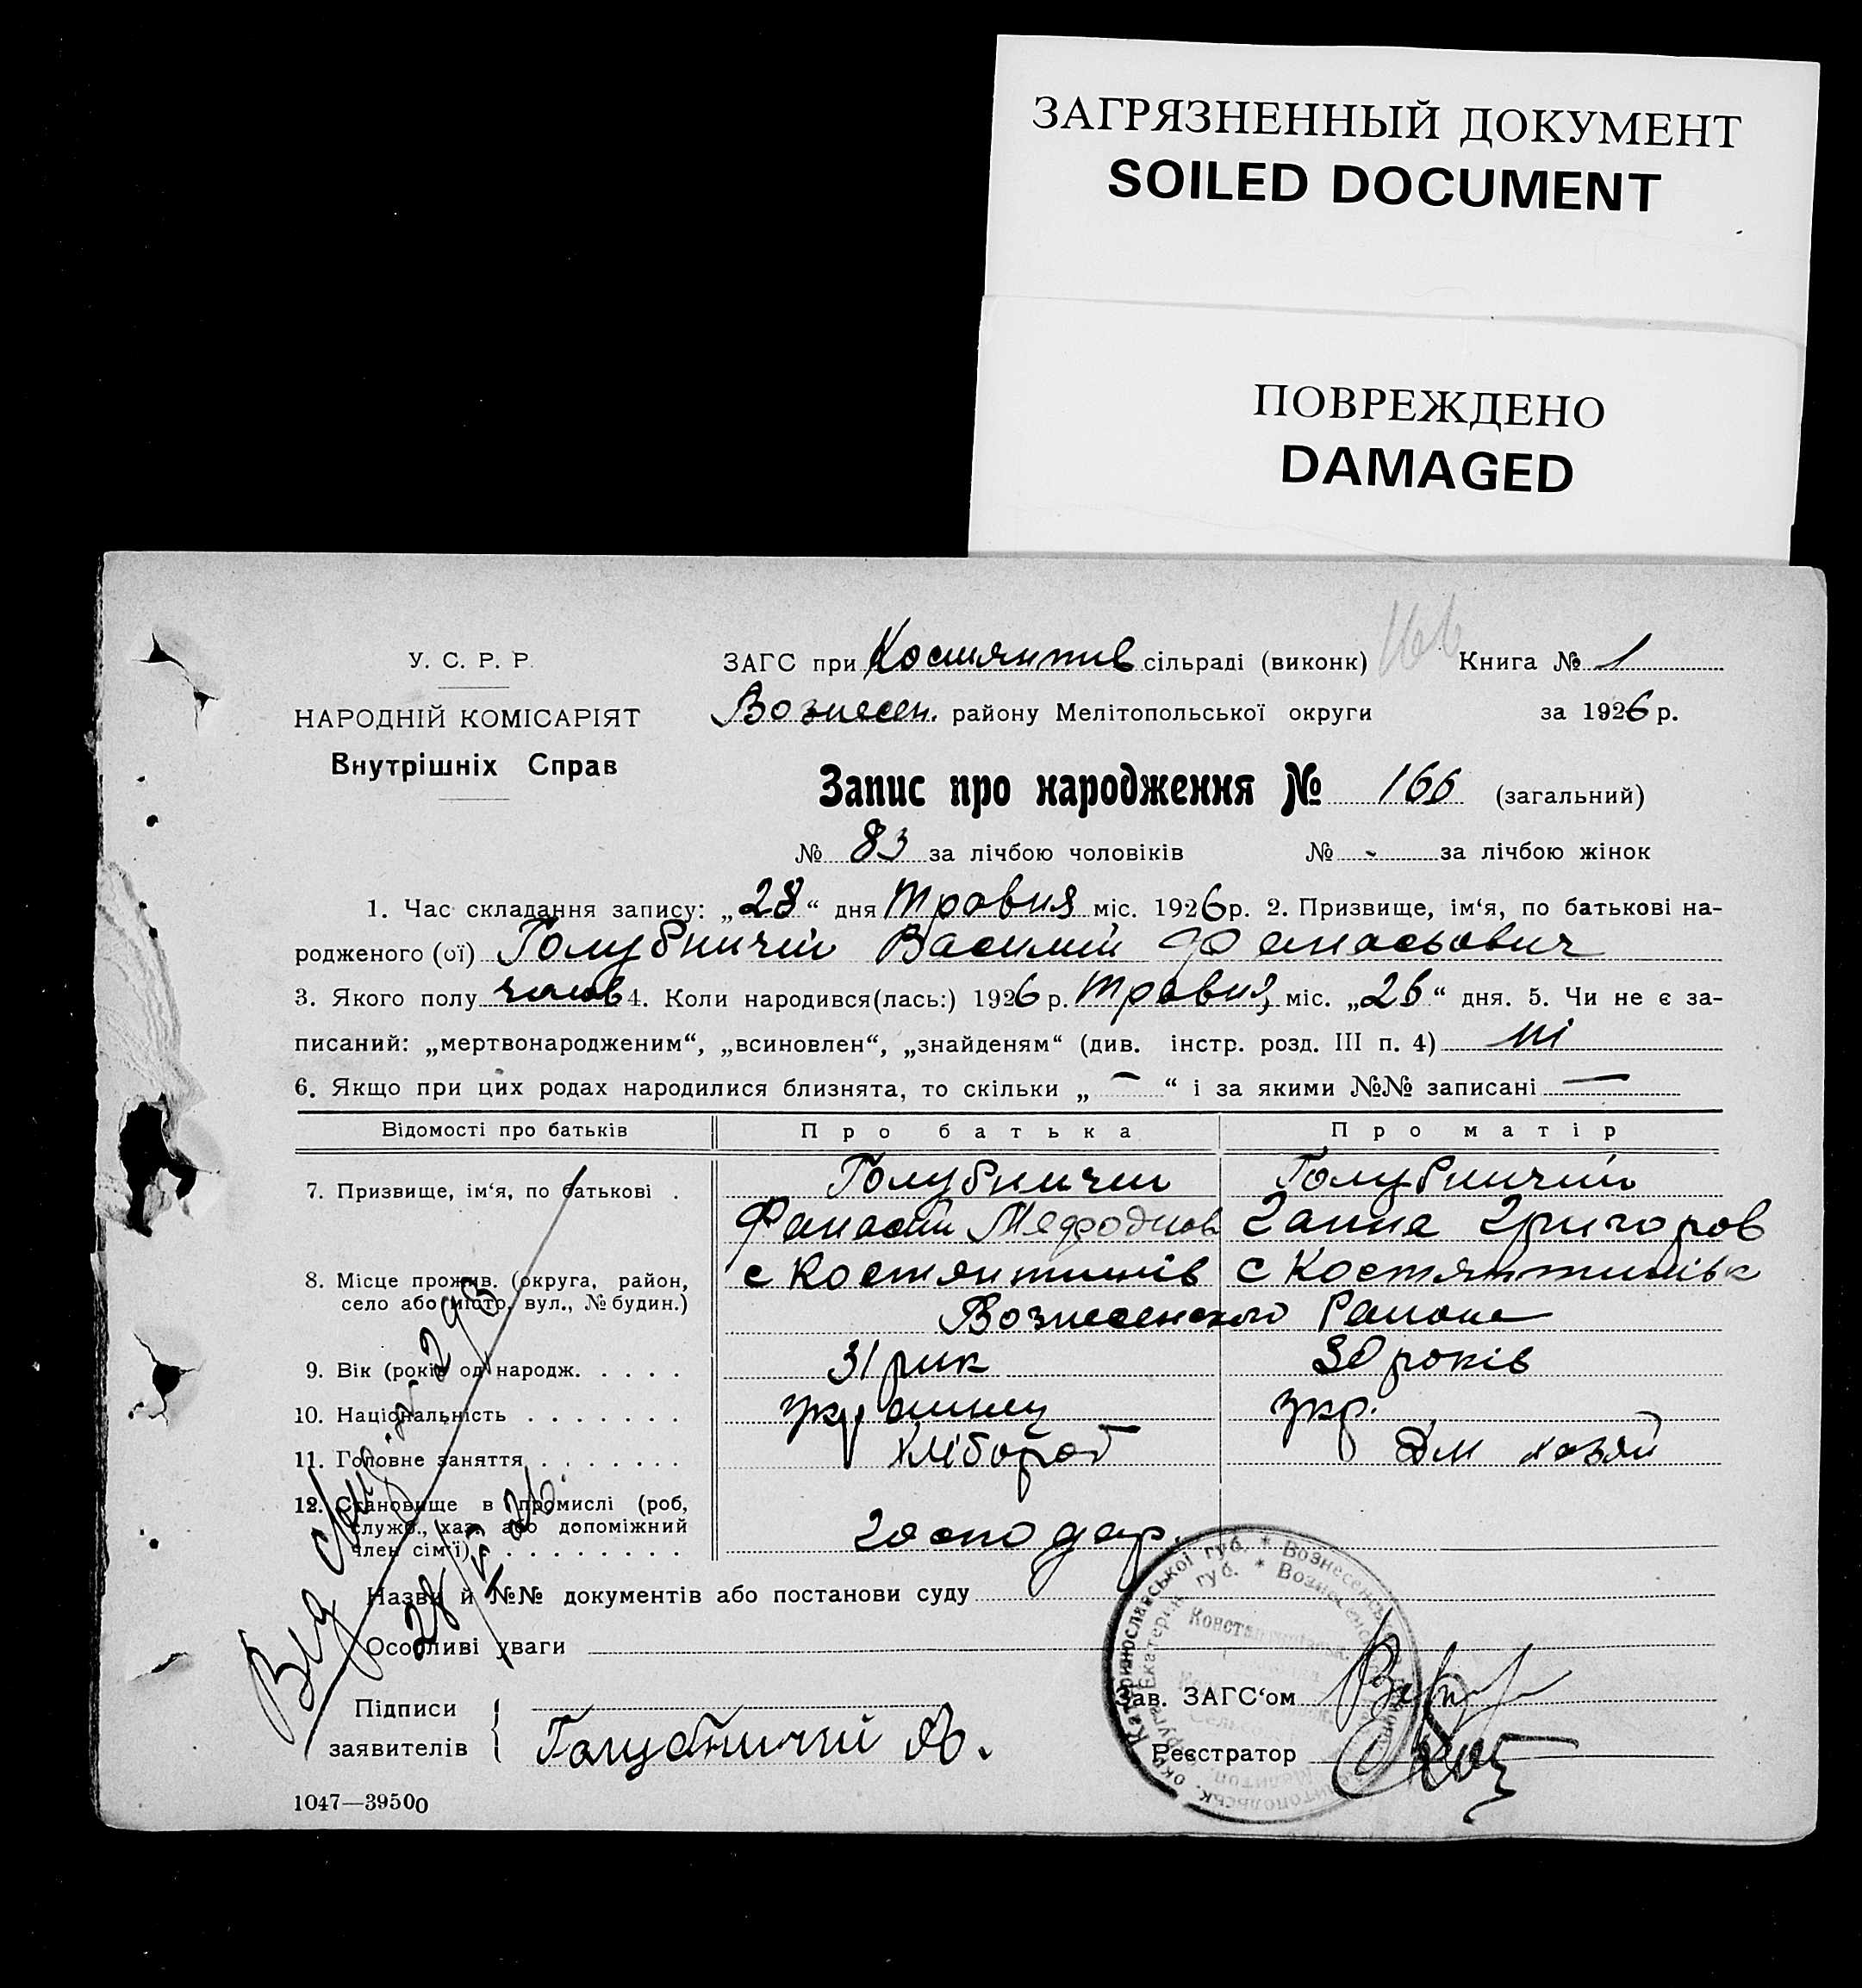 ЗАГРЯЗНЕННЫЙ ДОКУМЕНТ
SOILED DOCUMENT
ПОВРЕЖДЕНО
DAMAGED
У. С. Р. Р.
НАРОДНІЙ КОМІСАРІЯТ
Внутрішніх Справ
ЗАГС при Костянтив сільраді (виконк) 166 Книга № 1
Вознесен. району Мелітопольської округи за 1926 р.
Запис про народження № 166 (загальний)
№ 83 за лічбою чоловіків № - за лічбою жінок
1. Час складання запису: „28“ дня Травня міс. 1926 р. 2. Призвище, ім‘я, по батькові на-
родженого (ої) Голубничий Василий Фанасьович
3. Якого полу чолов 4. Коли народився(лась:) 1926 р. Травня міс. „26“ дня. 5. Чи не є за-
писаний: „мертвонародженим“, „всиновлен“, „знайденям“ (див. інстр. розд. III п. 4) ні
6. Якщо при цих родах народилися близнята, то скільки „ — “ і за якими №№ записані —
Відомості про батьків Про батька Про матір
7. Призвище, ім‘я, по батькові . Голубничий Голубничий
Фанасий Мефодиов Ганна Григоров
8. Місце прожив. (округа, район, с Костянтинів с Костянтинівк
село або місто, вул., № будин.) Вознесенского Района
9. Вік (років од народж. . . . . 31 рик 30 років
10. Національність . . . . . . . украинец укр.
11. Головне заняття . . . . . . . хлібороб Дм хозяй
12. Становище в промислі (роб,
служб., хаз. або допоміжний
член сім‘ї) . . . . . . . . . господар.
Назви й №№ документів або постанови суду
Особливі уваги
Вид 293
28/V 26.
Підписи
заявителів { Голубничий А.
Зав. ЗАГС‘ом
Реєстратор
1047—39500